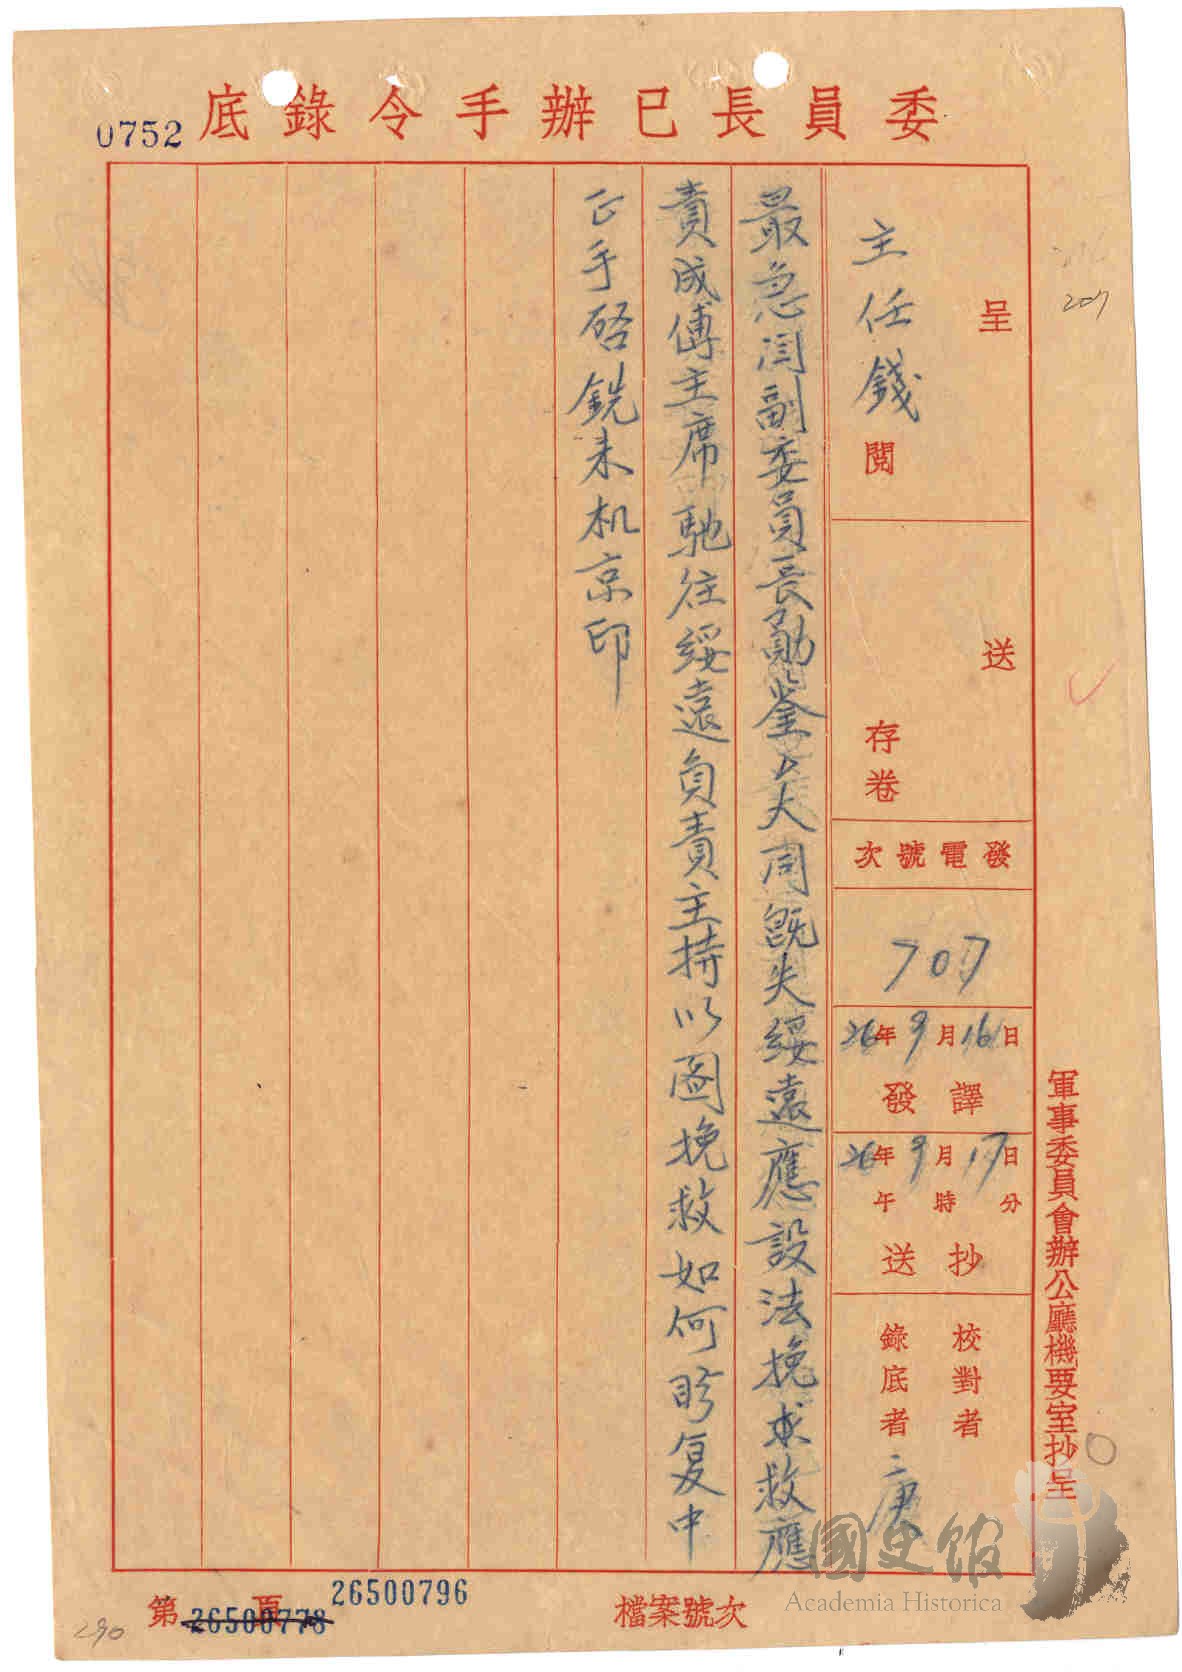 委員長已辦手令錄底
0752
207
呈
主任錢閱
送
存卷
發電號次
707
26年9月16日
譯發
26年9月17日
午時分
抄送
校對者
錄底者
庚
軍事委員會辦公廳機要室抄呈
最急閻副委員長勛鑒大同既失綏遠應設法挽求救應
責成傅主席馳往綏遠負責主持以图挽救如何盼复中
正手啓銑未机京印
檔案號次
第頁
26500778
26500796
290
國史館
Academia Historica